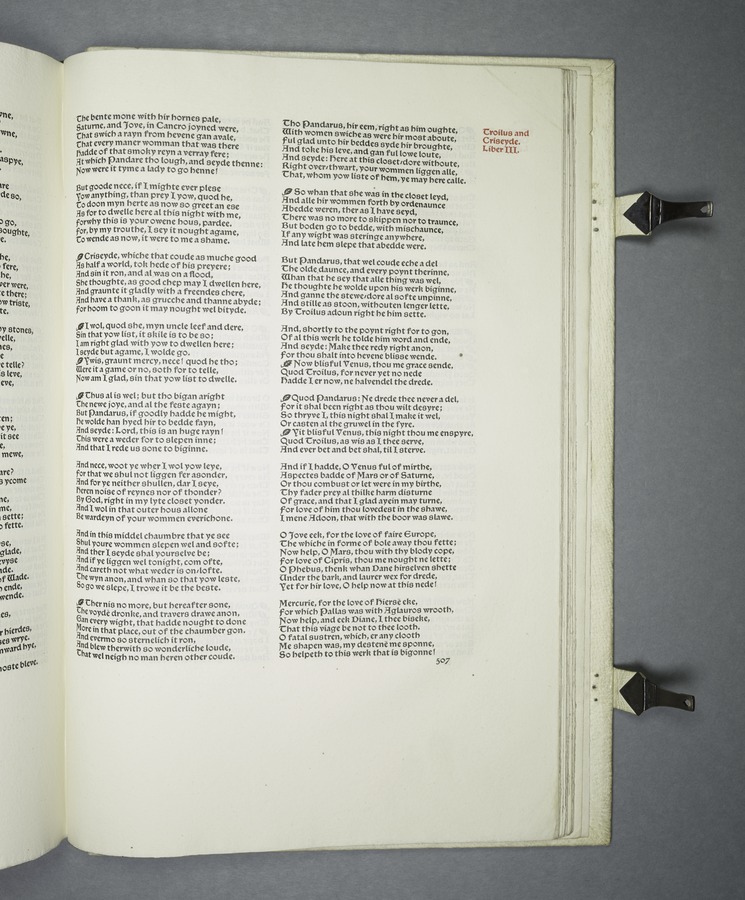 The bente mone with hir hornes pale,
Saturne, and Jove, in Cancro joyned were,
That swich a rayn from hevene gan avale,
That every maner womman that was there
Hadde of that smoky reyn a verray fere;
At which Pandare tho lough, and seyde thenne:
Now were it tyme a lady to go henne!
But goode nece, if I mighte ever plese
Yow anything, than prey I yow, quod he,
To doon myn herte as now so greet an ese
As for to dwelle here al this night with me,
Forwhy this is your owene hous, pardee.
For, by my trouthe, I sey it nought agame,
To wende as now, it were to me a shame.
Criseyde, whiche that coude as muche good
As half a world, tok hede of his preyere;
And sin it ron, and al was on a flood,
She thoughte, as good chep may I dwellen here,
And graunte it gladly with a freendes chere,
And have a thank, as grucche and thanne abyde;
For hoom to goon it may nought wel bityde.
I wol, quod she, myn uncle leef and dere,
Sin that yow list, it skile is to be so;
I am right glad with yow to dwellen here;
I seyde but agame, I wolde go.
Ywis, graunt mercy, nece! quod he tho;
Were it a game or no, soth for to telle,
Now am I glad, sin that yow list to dwelle.
Thus al is wel; but tho bigan aright
The newe joye, and al the feste agayn;
But Pandarus, if goodly hadde he might,
He wolde han hyed hir to bedde fayn,
And seyde: Lord, this is an huge rayn!
This were a weder for to slepen inne;
And that I rede us sone to biginne.
And nece, woot ye wher I wol yow leye,
For that we shul not liggen fer asonder,
And for ye neither shullen, dar I seye,
Heren noise of reynes nor of thonder?
By God, right in my lyte closet yonder.
And I wol in that outer hous allone
Be wardeyn of your wommen everichone.
And in this middel chaumbre that ye see
Shul youre wommen slepen wel and softe;
And ther I seyde shal yourselve be;
And if ye liggen wel tonight, com ofte,
And careth not what weder is on-lofte.
The wyn anon, and whan so that yow leste,
So go we slepe, I trowe it be the beste.
Ther nis no more, but hereafter sone,
The voydè dronke, and travers drawe anon,
Gan every wight, that hadde nought to done
More in that place, out of the chaumber gon.
And evermo so sternelich it ron,
And blew therwith so wonderliche loude,
That wel neigh no man heren other coude.
Tho Pandarus, hir eem, right as him oughte,
With women swiche as were hir most aboute,
Ful glad unto hir beddes syde hir broughte,
And toke his leve, and gan ful lowe loute,
And seyde: Here at this closet-dore withoute,
Right over-thwart, your wommen liggen alle,
That, whom yow liste of hem, ye may here calle.
So whan that she was in the closet leyd,
And alle hir wommen forth by ordenaunce
Abedde weren, ther as I have seyd,
There was no more to skippen nor to traunce,
But boden go to bedde, with mischaunce,
If any wight was steringe anywhere,
And late hem slepe that abedde were.
But Pandarus, that wel coude eche a del
The olde daunce, and every poynt therinne,
Whan that he sey that alle thing was wel,
He thoughte he wolde upon his werk biginne,
And ganne the stewe-dore al softe unpinne,
And stille as stoon, withouten lenger lette,
By Troilus adoun right he him sette.
And, shortly to the poynt right for to gon,
Of al this werk he tolde him word and ende,
And seyde: Make thee redy right anon,
For thou shalt into hevene blisse wende.
Now blisful Venus, thou me grace sende,
Quod Troilus, for never yet no nede
Hadde I er now, ne halvendel the drede.
Quod Pandarus: Ne drede thee never a del,
For it shal been right as thou wilt desyre;
So thryve I, this night shal I make it wel,
Or casten al the gruwel in the fyre.
Yit blisful Venus, this night thou me enspyre,
Quod Troilus, as wis as I thee serve,
And ever bet and bet shal, til I sterve.
And if I hadde, O Venus ful of mirthe,
Aspectes badde of Mars or of Saturne,
Or thou combust or let were in my birthe,
Thy fader prey al thilke harm disturne
Of grace, and that I glad ayein may turne,
For love of him thou lovedest in the shawe,
I mene Adoon, that with the boor was slawe.
O Jove eek, for the love of faire Europe,
The whiche in forme of bole away thou fette;
Now help, O Mars, thou with thy blody cope,
For love of Cipris, thou me nought ne lette;
O Phebus, thenk whan Dane hirselven shette
Under the bark, and laurer wex for drede,
Yet for hir love, O help now at this nede!
Mercurie, for the love of Hiersè eke,
For which Pallas was with Aglauros wrooth,
Now help, and eek Diane, I thee biseke,
That this viage be not to thee looth.
O fatal sustren, which, er any clooth
Me shapen was, my destenè me sponne,
So helpeth to this werk that is bigonne!
507
Troilus and
Criseyde.
Liber III.